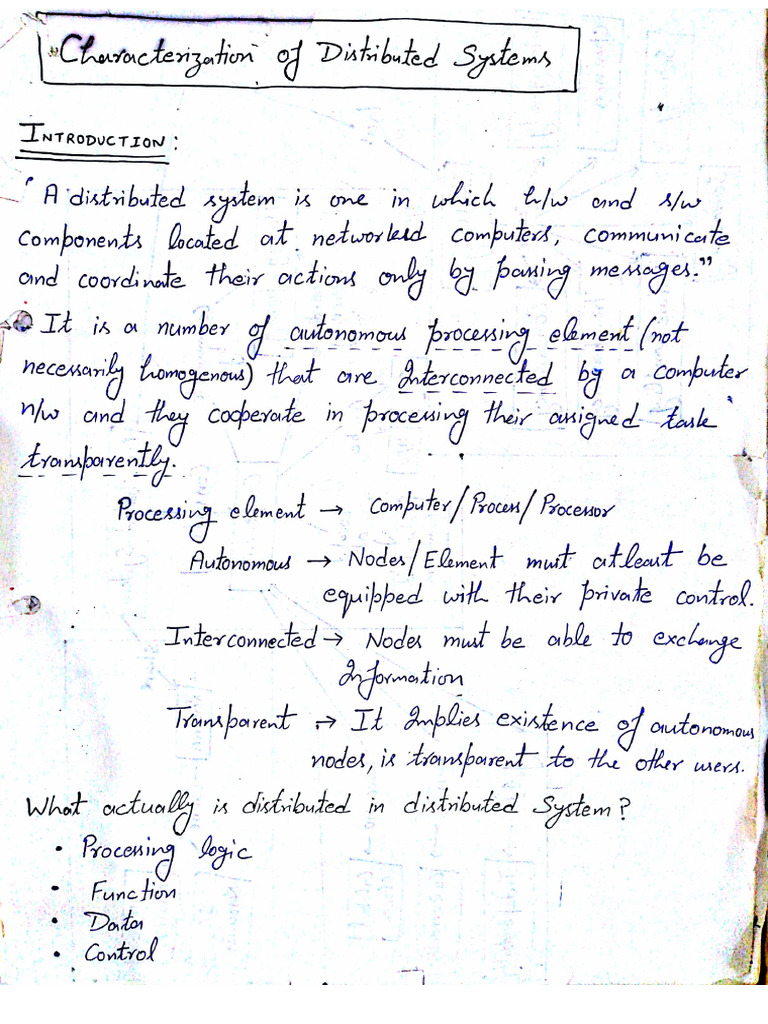 Characterization of Distributed Systems
INTRODUCTION:
"A distributed system is one in which h/w and s/w
components located at networked computers, communicate
and coordinate their actions only by passing messages."
It is a number of autonomous processing element (not
necessarily homogenous) that are Interconnected by a computer
n/w and they cooperate in processing their assigned task
transparently.
Processing element → Computer/Process/Processor
Autonomous → Nodes/Element must atleast be
equipped with their private control.
Interconnected → Nodes must be able to exchange
Information
Transparent → It Implies existence of autonomous
nodes, is transparent to the other users.
What actually is distributed in distributed System?
• Processing logic
• Function
• Data
• Control